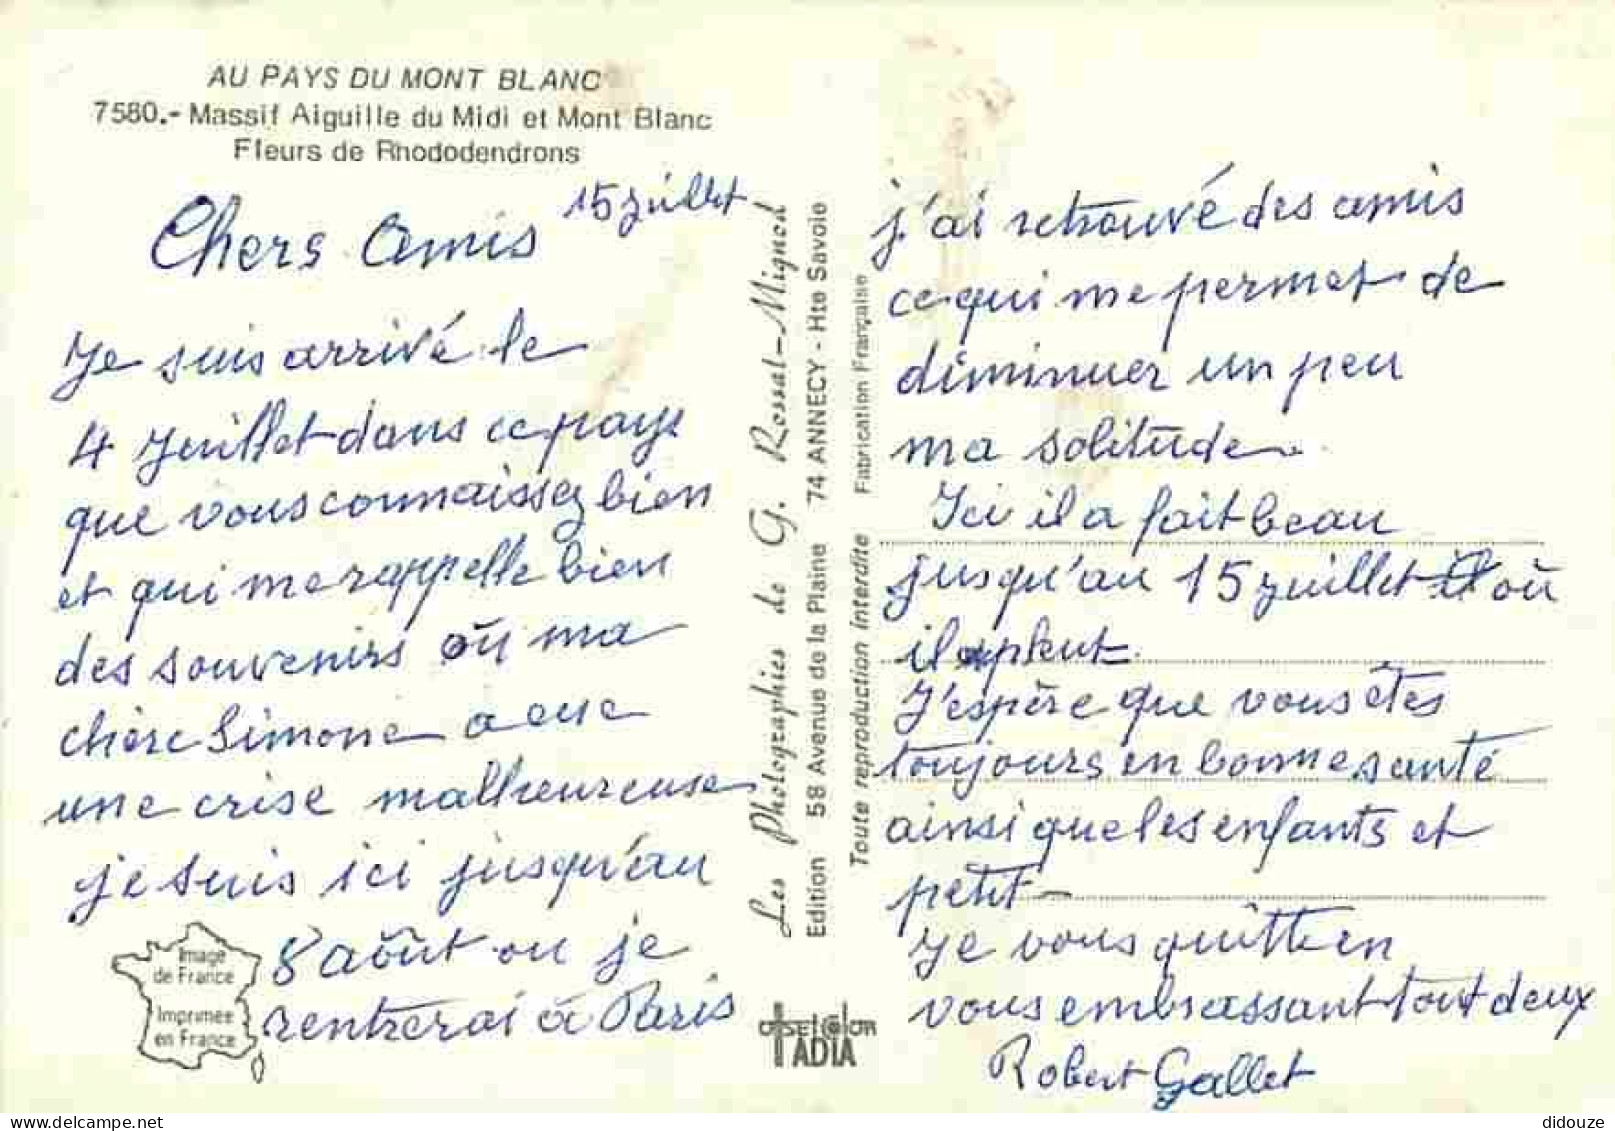 AU PAYS DU MONT BLANC
7580.- Massif Aiguille du Midi et Mont Blanc
Fleurs de Rhododendrons
15 juillet
Chers Amis
Je suis arrivé le
4 Juillet dans ce pays
que vous connaissez bien
et qui me rappelle bien
des souvenirs où ma
chère Simone a eue
une crise malheureuse
je suis ici jusqu'au
8 août ou je
rentrerai à Paris
Image
de France
Imprimée
en France
Les Photographies de G. Rossat-Mignod
Edition 58 Avenue de la Plaine 74 ANNECY - Hte Savoie
Toute reproduction interdite Fabrication Française
OFFSET COLOR
IADIA
j'ai retrouvé des amis
ce qui me permet de
diminuer un peu
ma solitude.
Ici il a fait beau
jusqu'au 15 juillet il où
il a pleut.
J'espère que vous êtes
toujours en bonne santé
ainsi que les enfants et
petit-
Je vous quitte en
vous embrassant tout deux
Robert Gallet
didouze